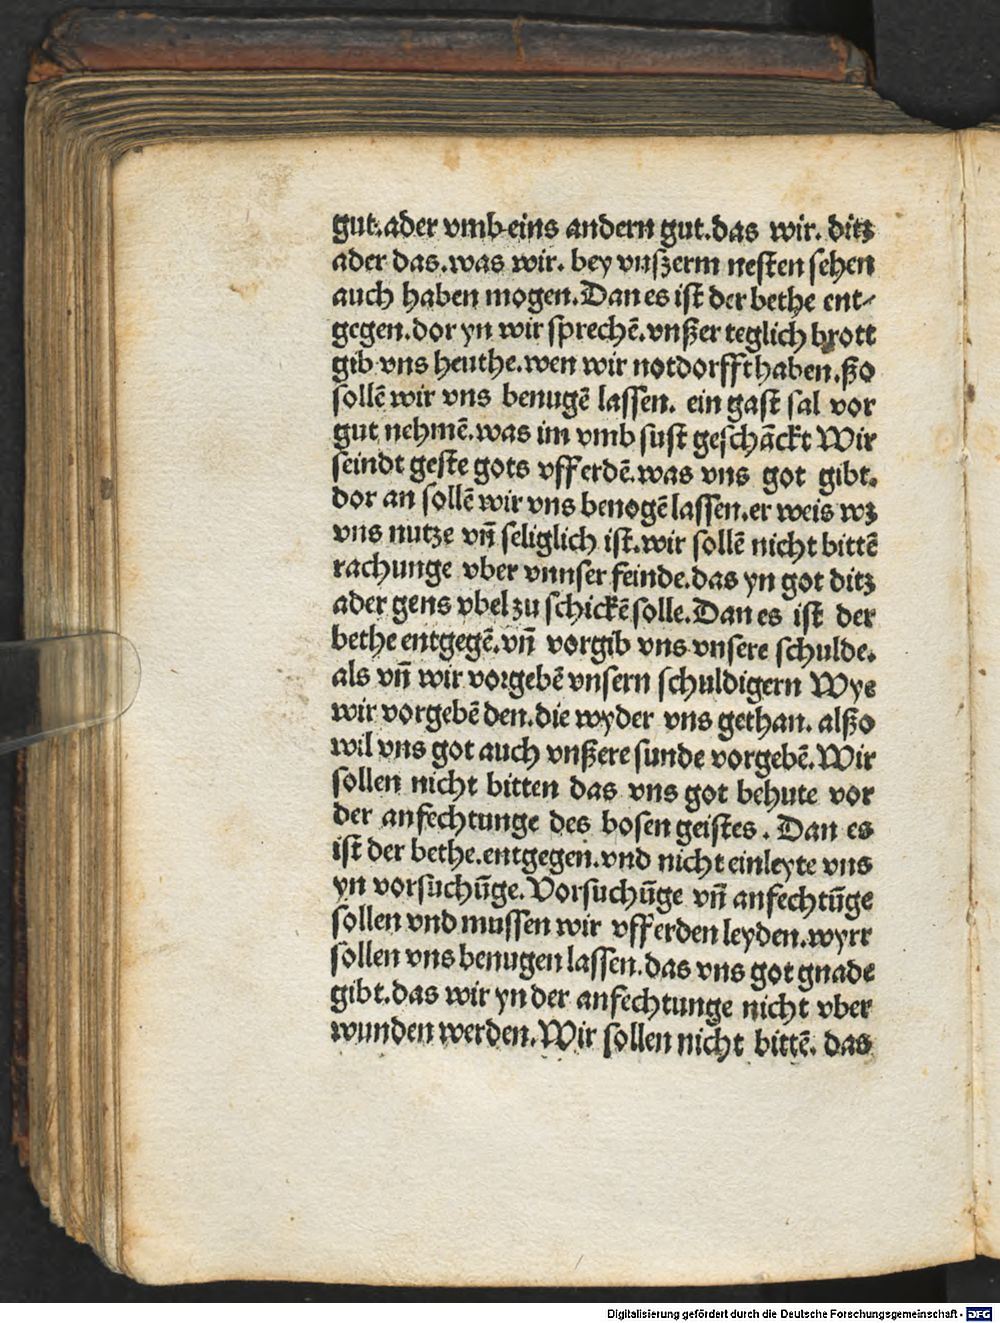 gut. ader vmb eins andern gut. das wir. ditz
ader das. was wir. bey vnßerm nesten sehen
auch haben mogen. Dan es ist der bethe ent-
gegen. dor yn wir sprechē. vnßer teglich brott
gib vns heuthe. wen wir notdorfft haben. ßo
sollē wir vns benugē lassen. ein gast sal vor
gut nehmē. was im vmb sust geschāckt Wir
seindt geste gots vff erdē. was vns got gibt.
dor an sollē wir vns benogē lassen. er weis wz
vns nutze vn̄ seliglich ist. wir sollē nicht bittē
rachunge vber vnnser feinde. das yn got ditz
ader gens vbel zu schickē solle. Dan es ist der
bethe entgegē. vn̄ vorgib vns vnsere schulde.
als vn̄ wir vorgebē vnsern schuldigern Wye
wir vorgebē den. die wyder vns gethan. alßo
wil vns got auch vnßere sunde vorgebē. Wir
sollen nicht bitten das vns got behute vor
der anfechtunge des bosen geistes. Dan es
ist der bethe. entgegen. vnd nicht einleyte vns
yn vorsuchūge. Vorsuchūge vn̄ anfechtūge
sollen vnd mussen wir vff erden leyden. wyrr
sollen vns benugen lassen. das vns got gnade
gibt. das wir yn der anfechtunge nicht vber
wunden werden. Wir sollen nicht bittē. das
Digitalisierung gefördert durch die Deutsche Forschungsgemeinschaft - DFG